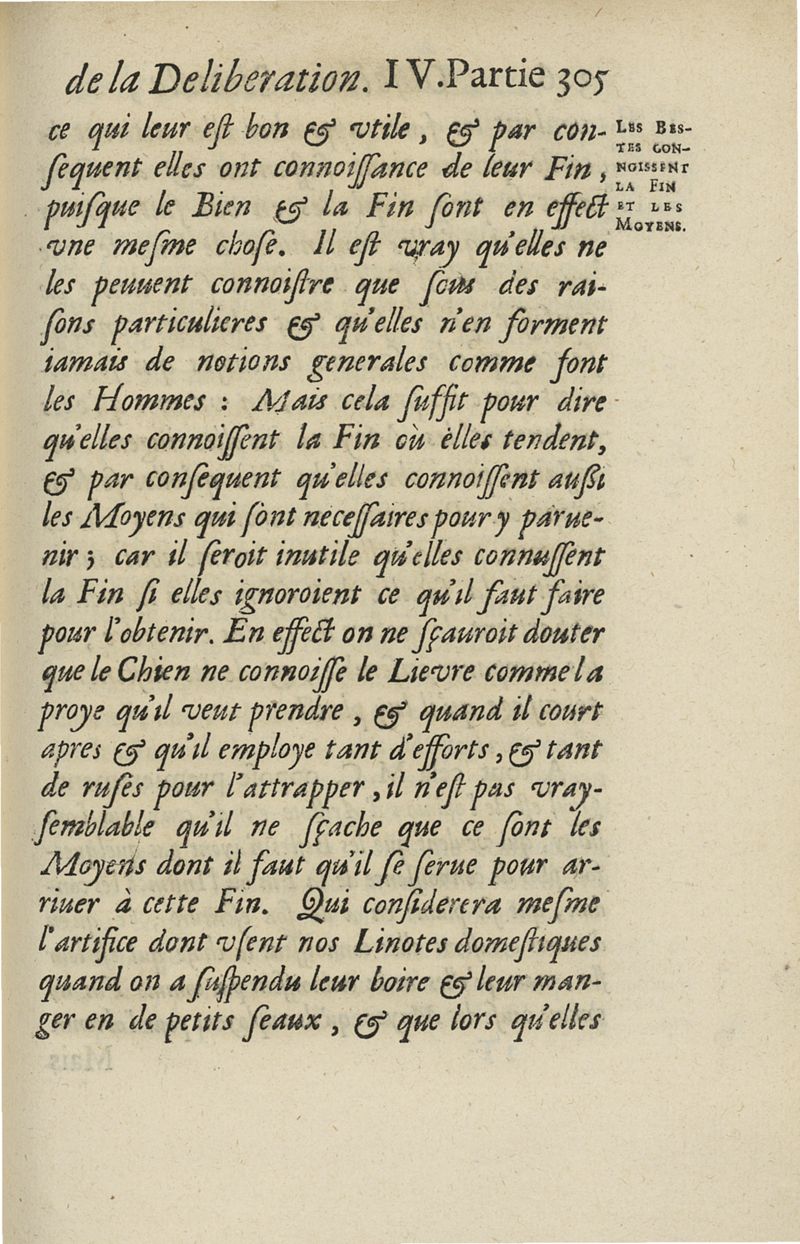 de la Deliberation. IV. Partie 305
ce qui leur eſt bon & vtile, & par con-
ſequent elles ont connoiſſance de leur Fin,
puiſque le Bien & la Fin ſont en effect
vne meſme choſe. Il eſt vray qu'elles ne
les peuuent connoiſtre que ſous des rai-
ſons particulieres & qu'elles n'en forment
iamais de notions generales comme font
les Hommes : Mais cela ſuffit pour dire
qu'elles connoiſſent la Fin où elles tendent,
& par conſequent qu'elles connoiſſent auſſi
les Moyens qui ſont neceſſaires pour y parue-
nir ; car il ſeroit inutile qu'elles connuſſent
la Fin ſi elles ignoroient ce qu'il faut faire
pour l'obtenir. En effect on ne ſçauroit douter
que le Chien ne connoiſſe le Lievre comme la
proye qu'il veut prendre , & quand il court
apres & qu'il employe tant d'efforts , & tant
de ruſes pour l'attrapper , il n'eſt pas vray-
ſemblable qu'il ne ſçache que ce ſont les
Moyens dont il faut qu'il ſe ſerue pour ar-
riuer à cette Fin. Qui conſiderera meſme
l'artifice dont vſent nos Linotes domeſtiques
quand on a ſuſpendu leur boire & leur man-
ger en de petits ſeaux , & que lors qu'elles
LES BES-
TES CON-
NOISSENT
LA FIN
ET LES
MOYENS.